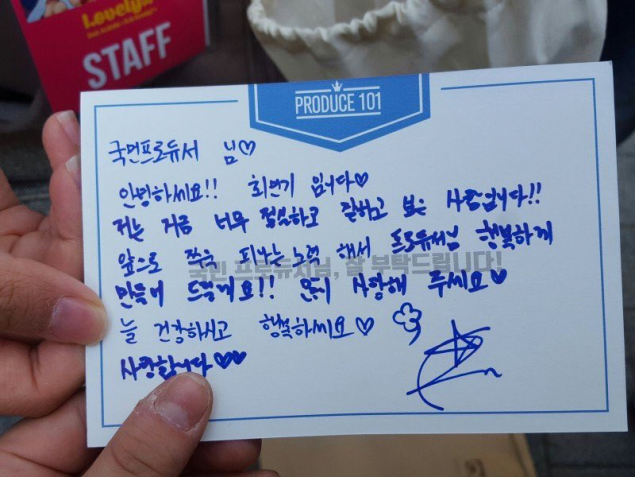 Lovelyz
STAFF
PRODUCE 101
국민프로듀서 님♡
안녕하세요!! 최연기 입니다♡
저는 지금 너무 절실하고 잘하고 싶은 사람입니다!!
앞으로 쭉 피나는 노력 해서 프로듀서님 행복하게
국민 프로듀서님, 잘 부탁드립니다!
만들어 드릴게요!! 많이 사랑해 주세요♡
늘 건강하시고 행복하세요♡
사랑합니다♡♡